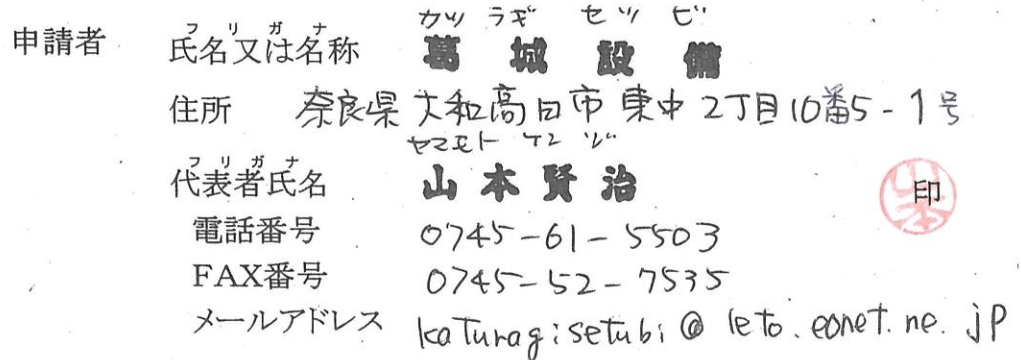 カツラギ セツビ
申請者 氏名又は名称 フリガナ 葛城設備
住所 奈良県大和高田市東中2丁目10番5-1号
ヤマモト ケンジ
代表者氏名 フリガナ 山本賢治 印 山本
電話番号 0745-61-5503
FAX番号 0745-52-7535
メールアドレス katuragisetubi@leto.eonet.ne.jp